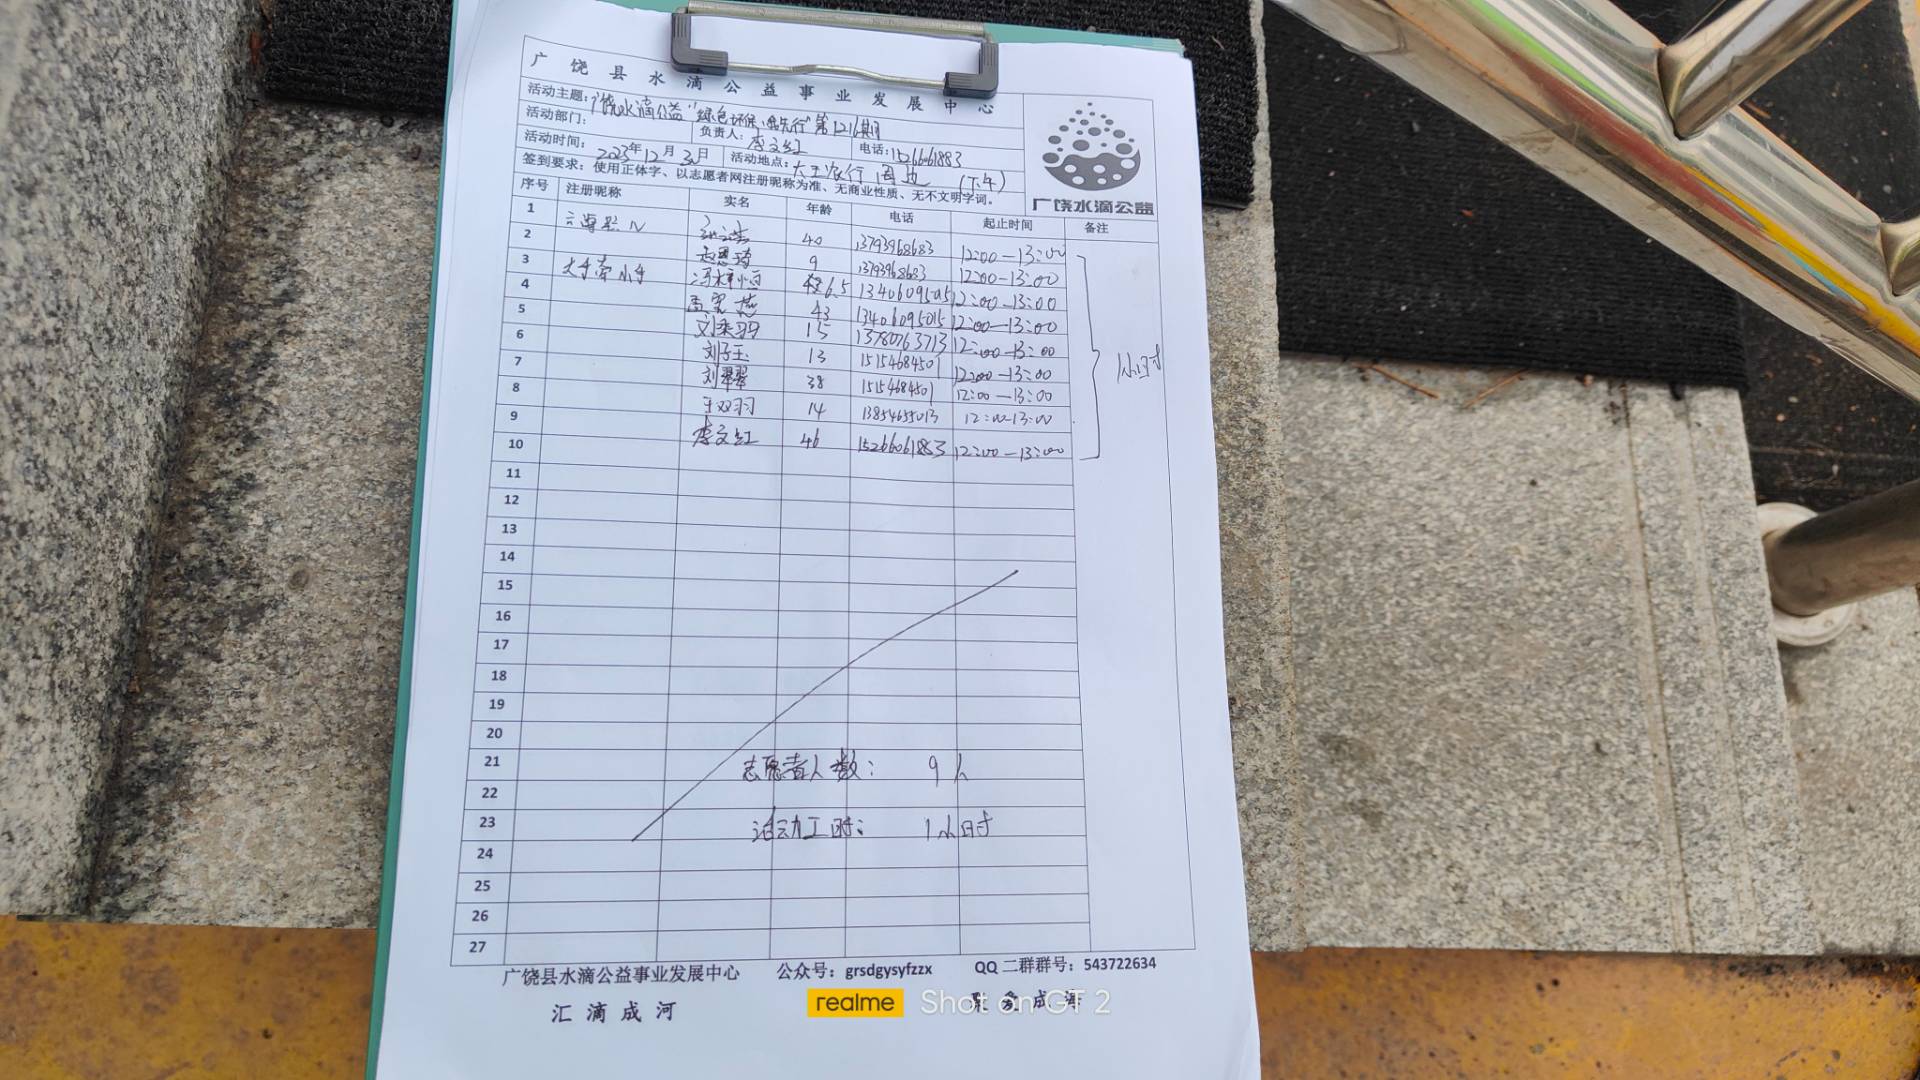 广饶县水滴公益事业发展中心
活动主题：广饶水滴公益"绿色环保，我先行"第1216期
活动部门： 负责人：李文红 电话：15266061883
活动时间：2023年12月30日 活动地点：大王农行周边（下午）
签到要求：使用正体字、以志愿者网注册昵称为准、无商业性质、无不文明字词。
广饶水滴公益
序号 注册昵称 实名 年龄 电话 起止时间 备注
1 40 13793968683 12:00—13:00
2 9 13793968683 12:00—13:00
3 大手牵小手 6.5 13406095015 12:00—13:00
4 43 13406095015 12:00—13:00
5 15 13780763713 12:00—13:00
6 刘子玉 13 15154684501 12:00—13:00
7 刘翠翠 38 15154684501 12:00—13:00
8 王双羽 14 13854655013 12:00—13:00
9 李文红 46 15266061883 12:00—13:00
1小时
10
11
12
13
14
15
16
17
18
19
20
21 志愿者人数： 9人
22
23 活动工时： 1小时
24
25
26
27
广饶县水滴公益事业发展中心 公众号：grsdgysyfzzx QQ二群群号：543722634
汇滴成河 聚爱成海
realme Shot on GT 2